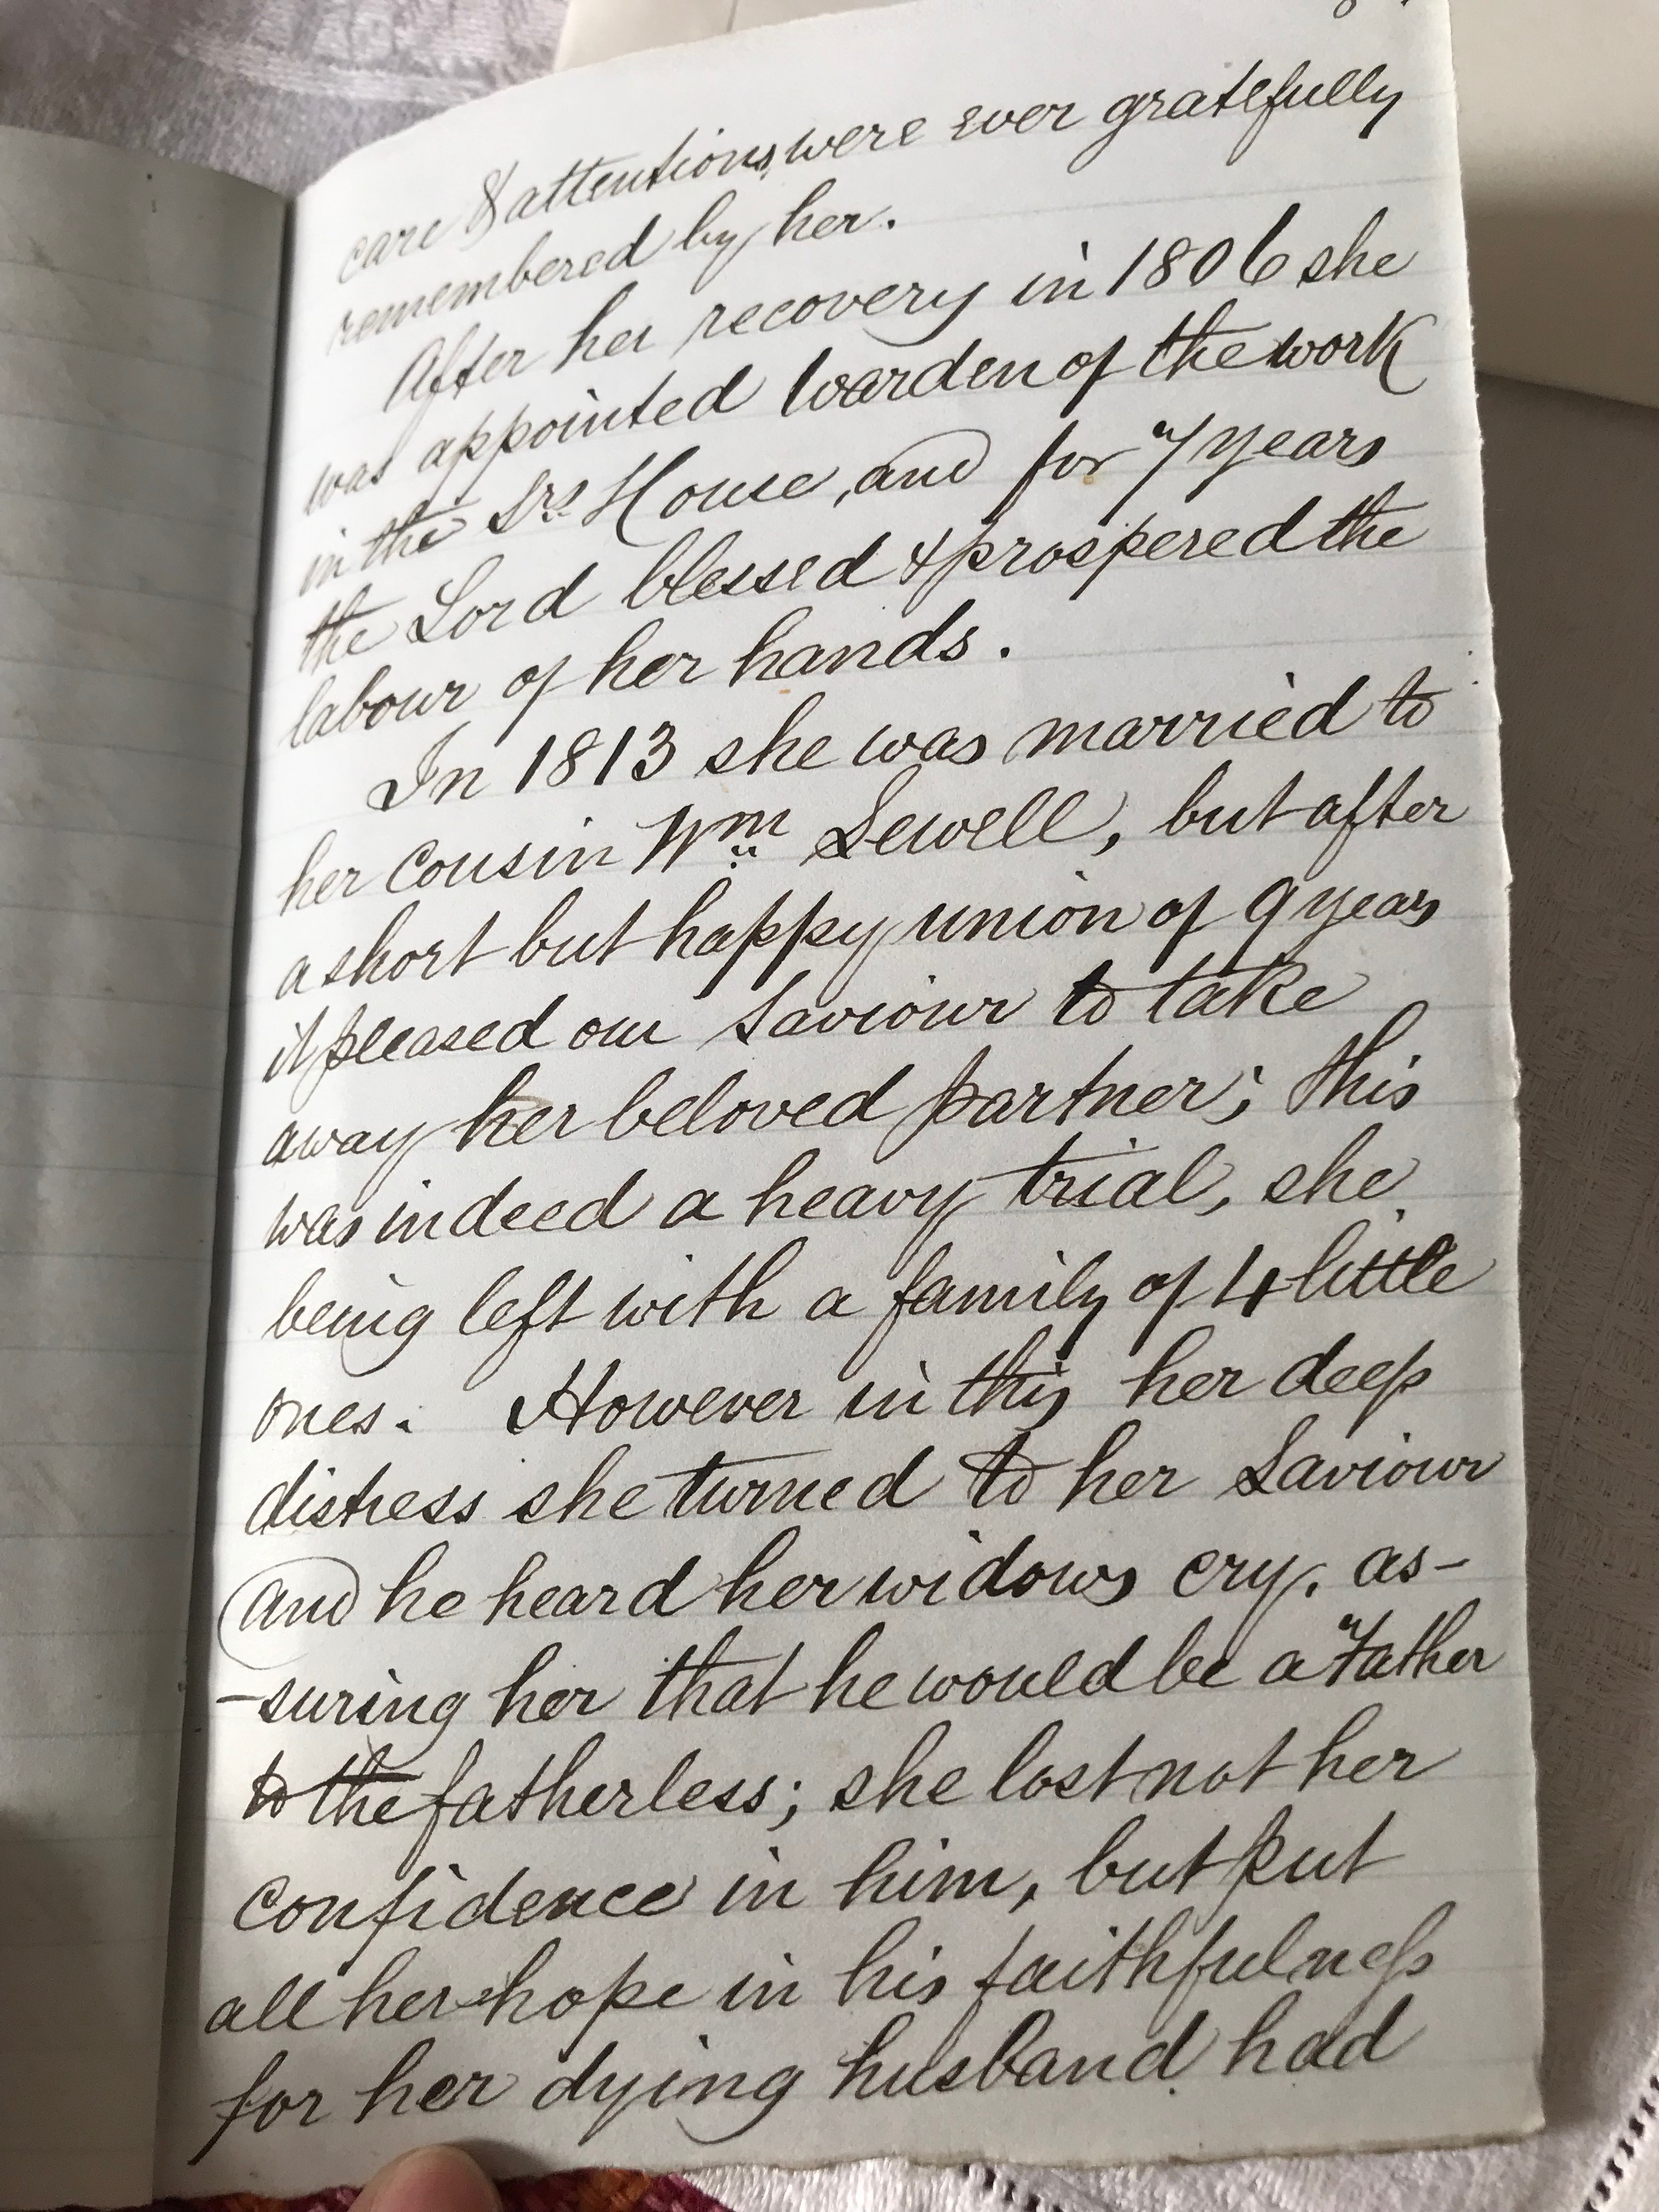 care & attentions, were ever gratefully
remembered by her.
After her recovery in 1806 she
was appointed Warden of the work
in the Srs House, and for 7 years
the Lord blessed & prospered the
labour of her hands.
In 1813 she was married to
her cousin Wm Sewell, but after
a short but happy union of 9 years
it pleased our Saviour to take
away her beloved partner; this
was indeed a heavy trial, she
being left with a family of 4 little
ones. However in this her deep
distress she turned to her Saviour
and he heard her widows cry, as-
-suring her that he would be a Father
to the fatherless; she lost not her
confidence in him, but put
all her hope in his faithfulness
for her dying husband had